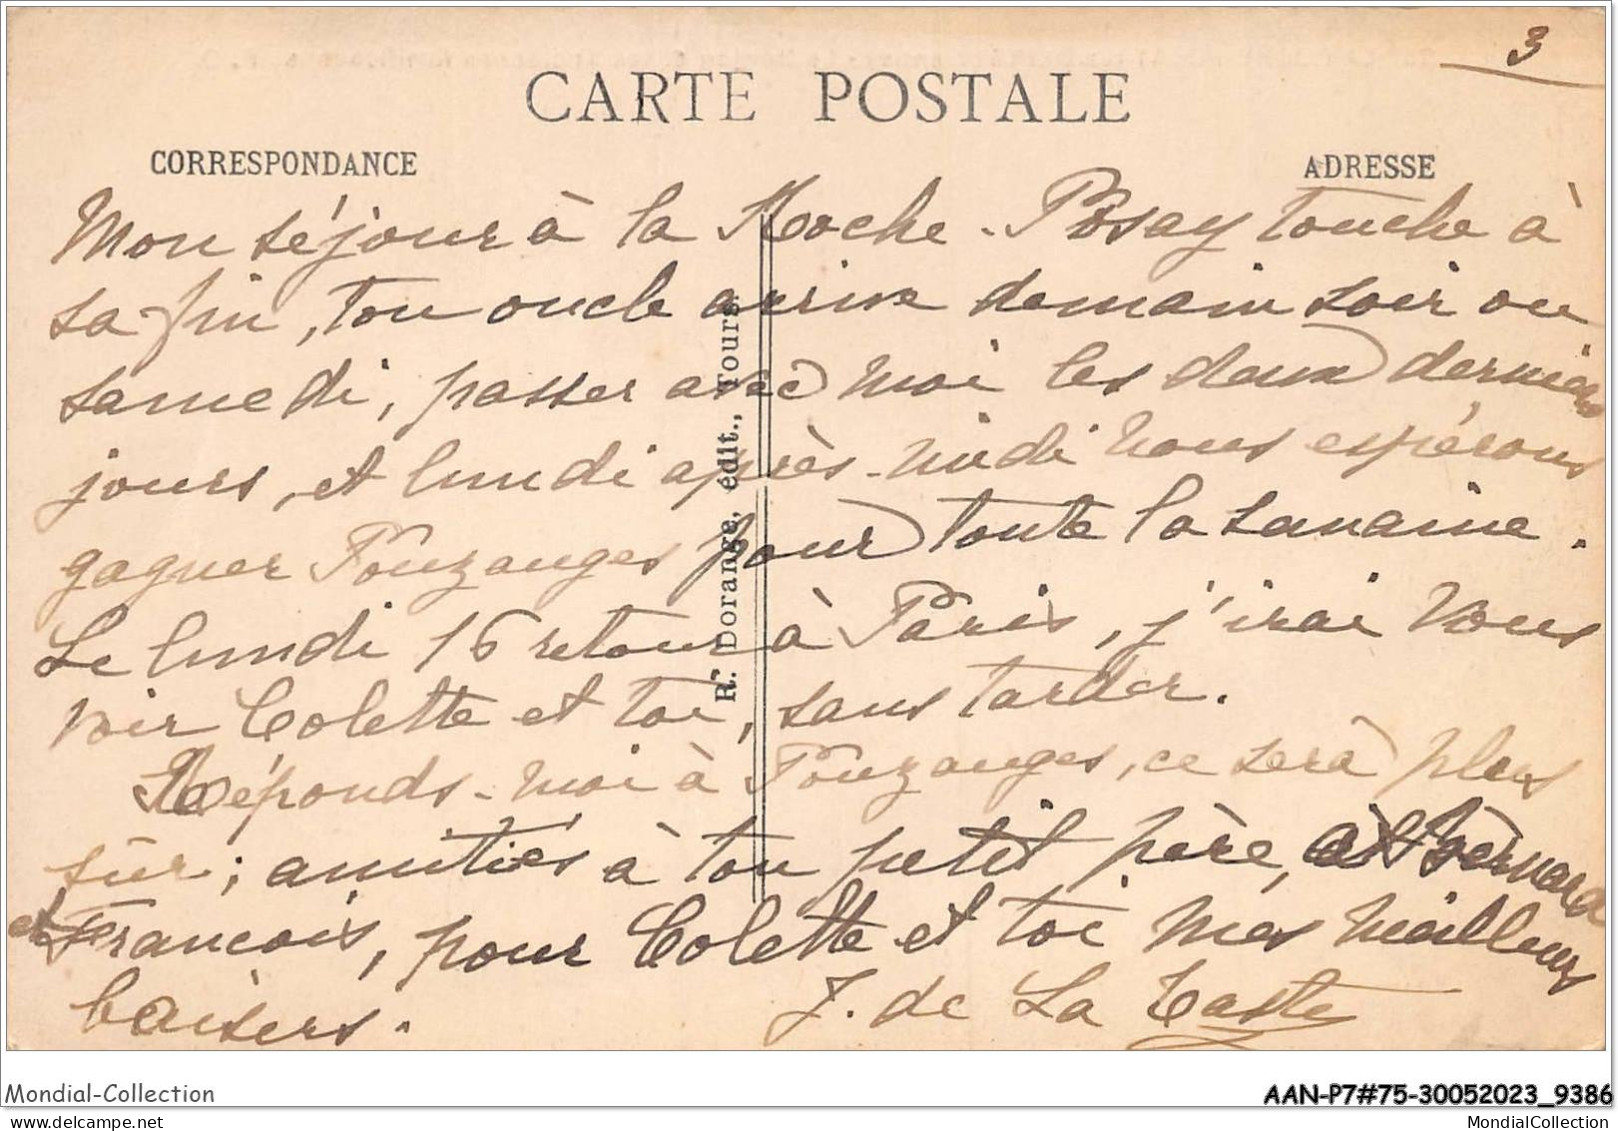 3
CARTE POSTALE
CORRESPONDANCE
ADRESSE
Mon séjour à la Roche-Posay touche à
sa fin, ton oncle arrive demain soir ou
samedi, passer avec moi les deux derniers
jours, et lundi après-midi nous espérons
gagner Pouzauges pour toute la semaine.
Le lundi 16 retour à Paris, j'irai vous
voir Colette et toi, sans tarder.
Réponds-moi à Pouzauges, ce sera plus
sûr; amitiés à ton petit père, à Bernard
et François, pour Colette et toi mes meilleurs
baisers. J. de La Taste
R. Dorange, édit., Tours.
Mondial-Collection
AAN-P7#75-30052023_9386
mondial-collection
MondialCollection